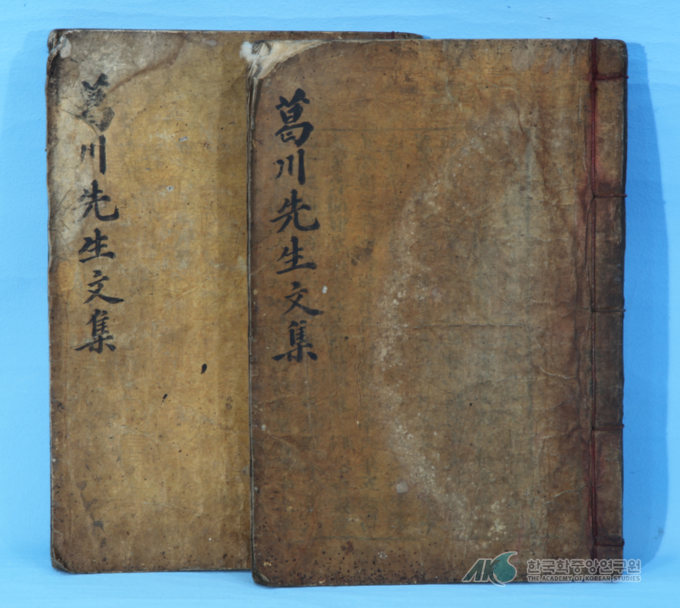 葛川先生文集
葛川先生文集
AKS 한국학중앙연구원
THE ACADEMY OF KOREAN STUDIES